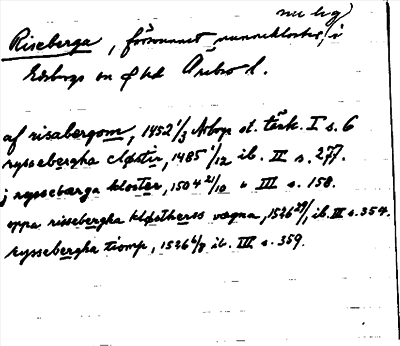 nu byg
Riseberga, försvunnet nunnekloster, i
Edsbergs sn o hd Örebro l.
af risabergom, 1452 1/3 Arbog st. tänk. I s. 6
ryssebergha closter, 1485 1/12 ib. II s. 277.
j ryssebærga kloster, 1504 21/10 " III s. 158.
oppa rissebergha kløstheres vægna, 1526 29/1, ib. III s. 354.
Ryssebergha tiomp, 1526 6/8 ib. III s. 359.